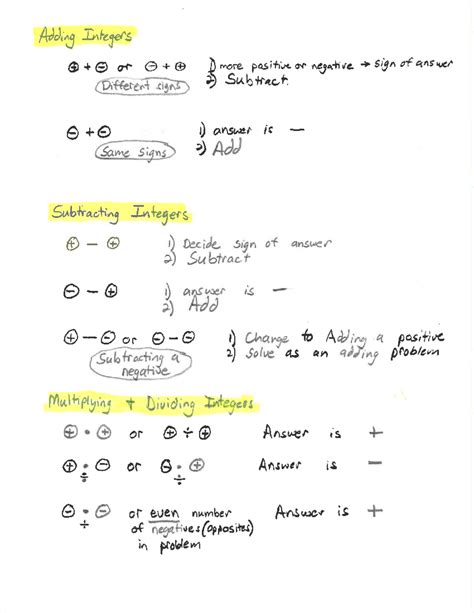 Adding Integers
⊕ + ⊖ or ⊖ + ⊕ 1) more positive or negative → sign of answer
Different signs 2) Subtract.
⊖ + ⊖ 1) answer is −
Same signs 2) Add
Subtracting Integers
⊕ − ⊕ 1) Decide sign of answer
2) Subtract
⊖ − ⊕ 1) answer is −
2) Add
⊕ − ⊖ or ⊖ − ⊖ 1) Change to Adding a positive
Subtracting a 2) Solve as an adding problem
negative
Multiplying + Dividing Integers
⊕ • ⊕ or ⊕ ÷ ⊕ Answer is +
⊕ • ⊖ or ⊖ • ⊕ Answer is −
÷ ÷
⊖ • ⊖ or even number Answer is +
÷ of negatives (opposites)
in problem